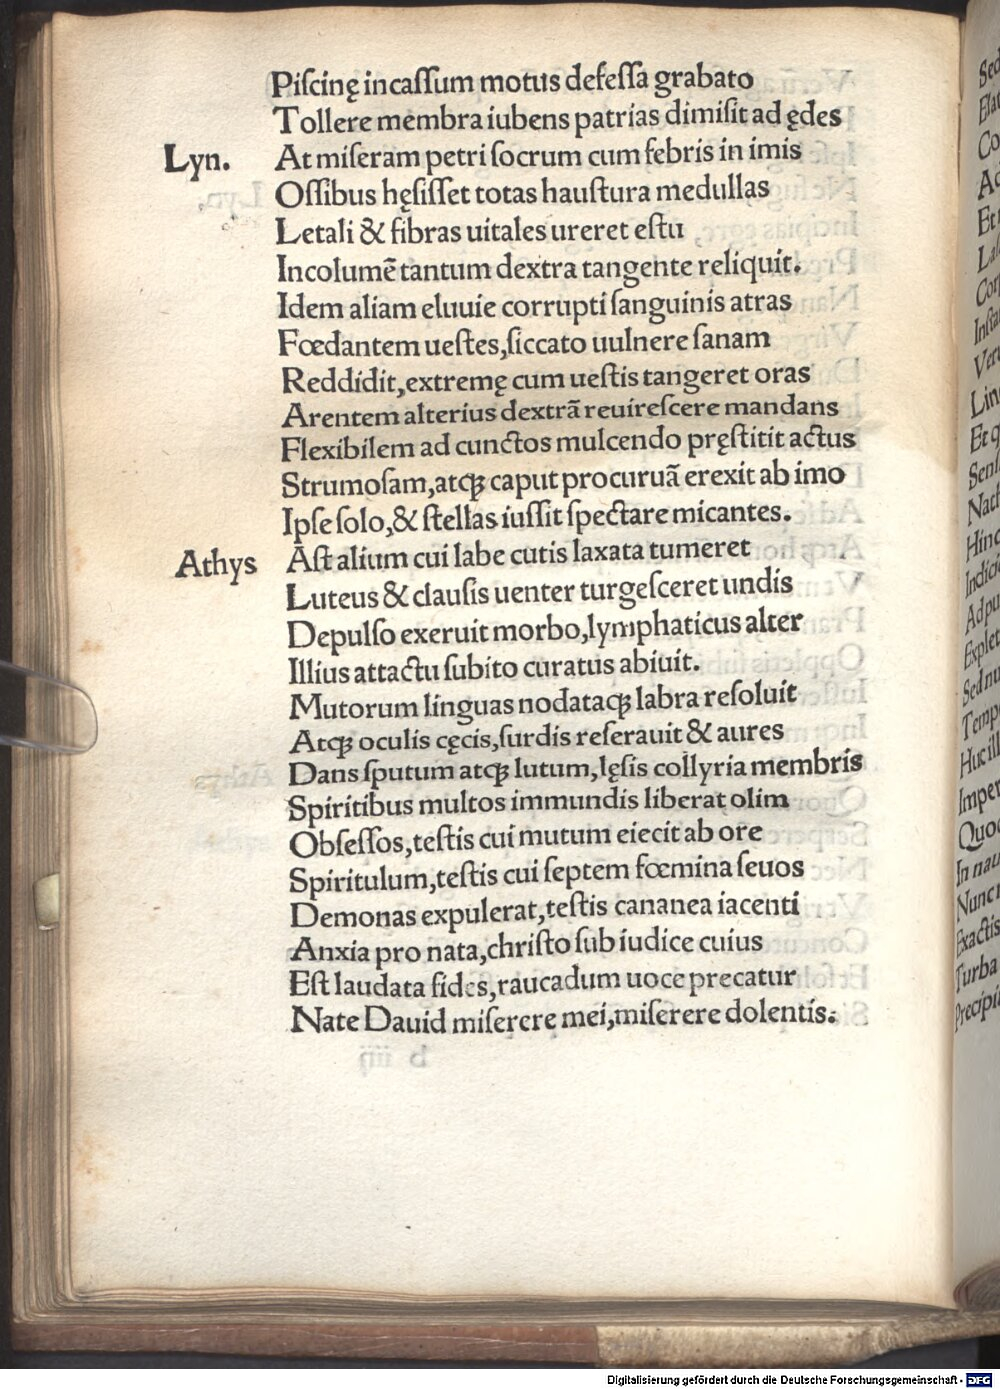 Piſcinę incaſſum motus defeſſa grabato
Tollere membra iubens patrias dimiſit ad ędes
Lyn. At miſeram petri ſocrum cum febris in imis
Oſſibus hęſiſſet totas hauſtura medullas
Letali & fibras uitales ureret eſtu
Incolumē tantum dextra tangente reliquit.
Idem aliam eluuie corrupti ſanguinis atras
Fœdantem ueſtes, ſiccato uulnere ſanam
Reddidit, extremę cum ueſtis tangeret oras
Arentem alterius dextrā reuireſcere mandans
Flexibilem ad cunctos mulcendo pręſtitit actus
Strumoſam, atqꝫ caput procuruā erexit ab imo
Ipſe ſolo, & ſtellas iuſſit ſpectare micantes.
Athys Aſt alium cui labe cutis laxata tumeret
Luteus & clauſis uenter turgeſceret undis
Depulſo exeruit morbo, lymphaticus alter
Illius attactu ſubito curatus abiuit.
Mutorum linguas nodataqꝫ labra reſoluit
Atqꝫ oculis cęcis, ſurdis reſerauit & aures
Dans ſputum atqꝫ lutum, lęſis collyria membris
Spiritibus multos immundis liberat olim
Obſeſſos, teſtis cui mutum eiecit ab ore
Spiritulum, teſtis cui ſeptem fœmina ſeuos
Demonas expulerat, teſtis cananea iacenti
Anxia pro nata, chriſto ſub iudice cuius
Eſt laudata fides, raucadum uoce precatur
Nate Dauid miſerere mei, miſerere dolentis.
Digitalisierung gefördert durch die Deutsche Forschungsgemeinschaft - DFG